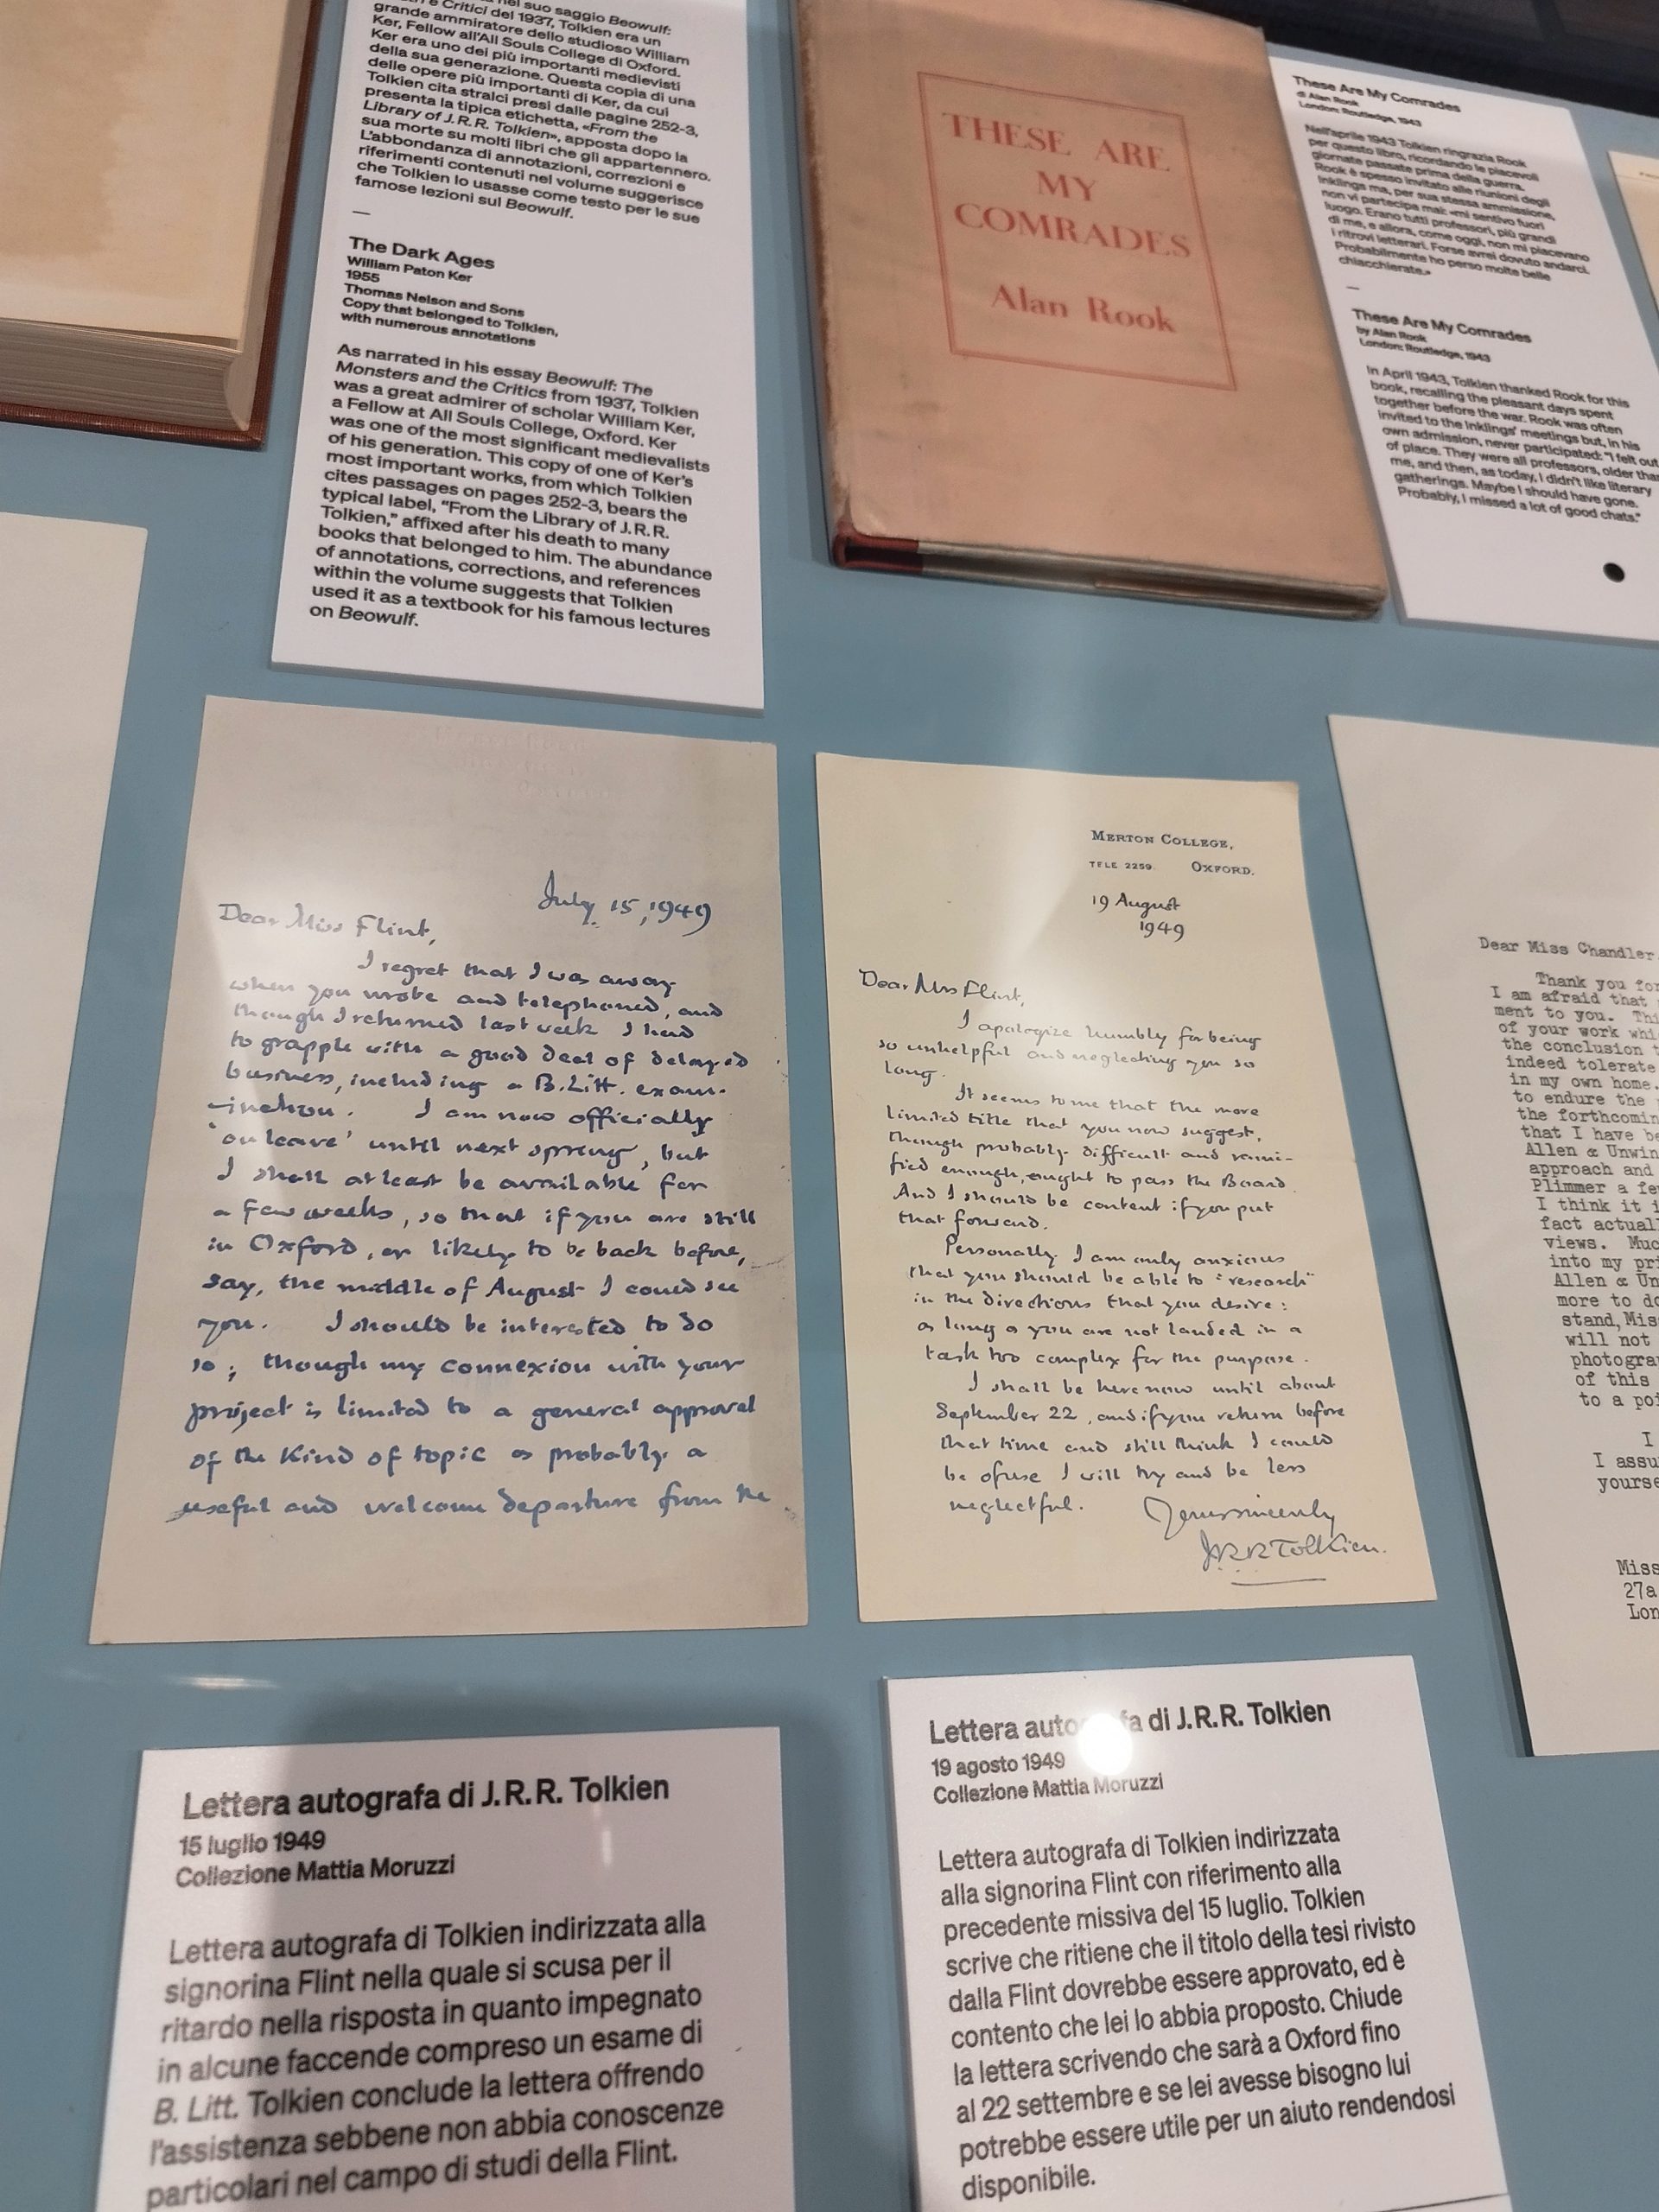 nel suo saggio Beowulf:
e Critici del 1937, Tolkien era un
grande ammiratore dello studioso William
Ker, Fellow all'All Souls College di Oxford.
Ker era uno dei più importanti medievisti
della sua generazione. Questa copia di una
delle opere più importanti di Ker, da cui
Tolkien cita stralci presi dalle pagine 252-3,
presenta la tipica etichetta, «From the
Library of J.R.R. Tolkien», apposta dopo la
sua morte su molti libri che gli appartennero.
L'abbondanza di annotazioni, correzioni e
riferimenti contenuti nel volume suggerisce
che Tolkien lo usasse come testo per le sue
famose lezioni sul Beowulf.
—
The Dark Ages
William Paton Ker
1955
Thomas Nelson and Sons
Copy that belonged to Tolkien,
with numerous annotations
As narrated in his essay Beowulf: The
Monsters and the Critics from 1937, Tolkien
was a great admirer of scholar William Ker,
a Fellow at All Souls College, Oxford. Ker
was one of the most significant medievalists
of his generation. This copy of one of Ker's
most important works, from which Tolkien
cites passages on pages 252-3, bears the
typical label, "From the Library of J.R.R.
Tolkien," affixed after his death to many
books that belonged to him. The abundance
of annotations, corrections, and references
within the volume suggests that Tolkien
used it as a textbook for his famous lectures
on Beowulf.
THESE ARE
MY
COMRADES
Alan Rook
These Are My Comrades
di Alan Rook
London: Routledge, 1943
Nell'aprile 1943 Tolkien ringrazia Rook
per questo libro, ricordando le piacevoli
giornate passate prima della guerra.
Rook è spesso invitato alle riunioni degli
Inklings ma, per sua stessa ammissione,
non vi partecipa mai: «mi sentivo fuori
luogo. Erano tutti professori, più grandi
di me, e allora, come oggi, non mi piacevano
i ritrovi letterari. Forse avrei dovuto andarci.
Probabilmente ho perso molte belle
chiacchierate.»
—
These Are My Comrades
by Alan Rook
London: Routledge, 1943
In April 1943, Tolkien thanked Rook for this
book, recalling the pleasant days spent
together before the war. Rook was often
invited to the Inklings' meetings but, in his
own admission, never participated: "I felt out
of place. They were all professors, older than
me, and then, as today, I didn't like literary
gatherings. Maybe I should have gone.
Probably, I missed a lot of good chats."
July 15, 1949
Dear Miss Flint,
I regret that I was away
when you wrote and telephoned, and
though I returned last week I had
to grapple with a good deal of delayed
business, including a B.Litt. exam-
-ination. I am now officially
'on leave' until next spring, but
I shall at least be available for
a few weeks, so that if you are still
in Oxford, or likely to be back before,
say, the middle of August I could see
you. I should be interested to do
so; though my connexion with your
project is limited to a general approval
of the kind of topic as probably a
useful and welcome departure from the
MERTON COLLEGE,
TELE 2259. OXFORD.
19 August
1949
Dear Miss Flint,
I apologize humbly for being
so unhelpful and neglecting you so
long.
It seems to me that the more
limited title that you now suggest,
though probably difficult and rami-
fied enough, ought to pass the Board.
And I should be content if you put
that forward.
Personally I am only anxious
that you should be able to "research"
in the directions that you desire:
as long as you are not landed in a
task too complex for the purpose.
I shall be here now until about
September 22, and if you return before
that time and still think I could
be of use I will try and be less
neglectful.
Yours sincerely
J.R.R. Tolkien.
Dear Miss Chandler
Thank you for
I am afraid that
ment to you. Thi
of your work whi
the conclusion t
indeed tolerate
in my own home.
to endure the
the forthcomin
that I have be
Allen & Unwin
approach and
Plimmer a fe
I think it i
fact actual
views. Muc
into my pri
Allen & Un
more to do
stand, Mis
will not
photogra
of this
to a poi
I
I assu
yourse
Miss
27a
Lon
Lettera autografa di J.R.R. Tolkien
15 luglio 1949
Collezione Mattia Moruzzi
Lettera autografa di Tolkien indirizzata alla
signorina Flint nella quale si scusa per il
ritardo nella risposta in quanto impegnato
in alcune faccende compreso un esame di
B. Litt. Tolkien conclude la lettera offrendo
l'assistenza sebbene non abbia conoscenze
particolari nel campo di studi della Flint.
Lettera auto fa di J.R.R. Tolkien
19 agosto 1949
Collezione Mattia Moruzzi
Lettera autografa di Tolkien indirizzata
alla signorina Flint con riferimento alla
precedente missiva del 15 luglio. Tolkien
scrive che ritiene che il titolo della tesi rivisto
dalla Flint dovrebbe essere approvato, ed è
contento che lei lo abbia proposto. Chiude
la lettera scrivendo che sarà a Oxford fino
al 22 settembre e se lei avesse bisogno lui
potrebbe essere utile per un aiuto rendendosi
disponibile.